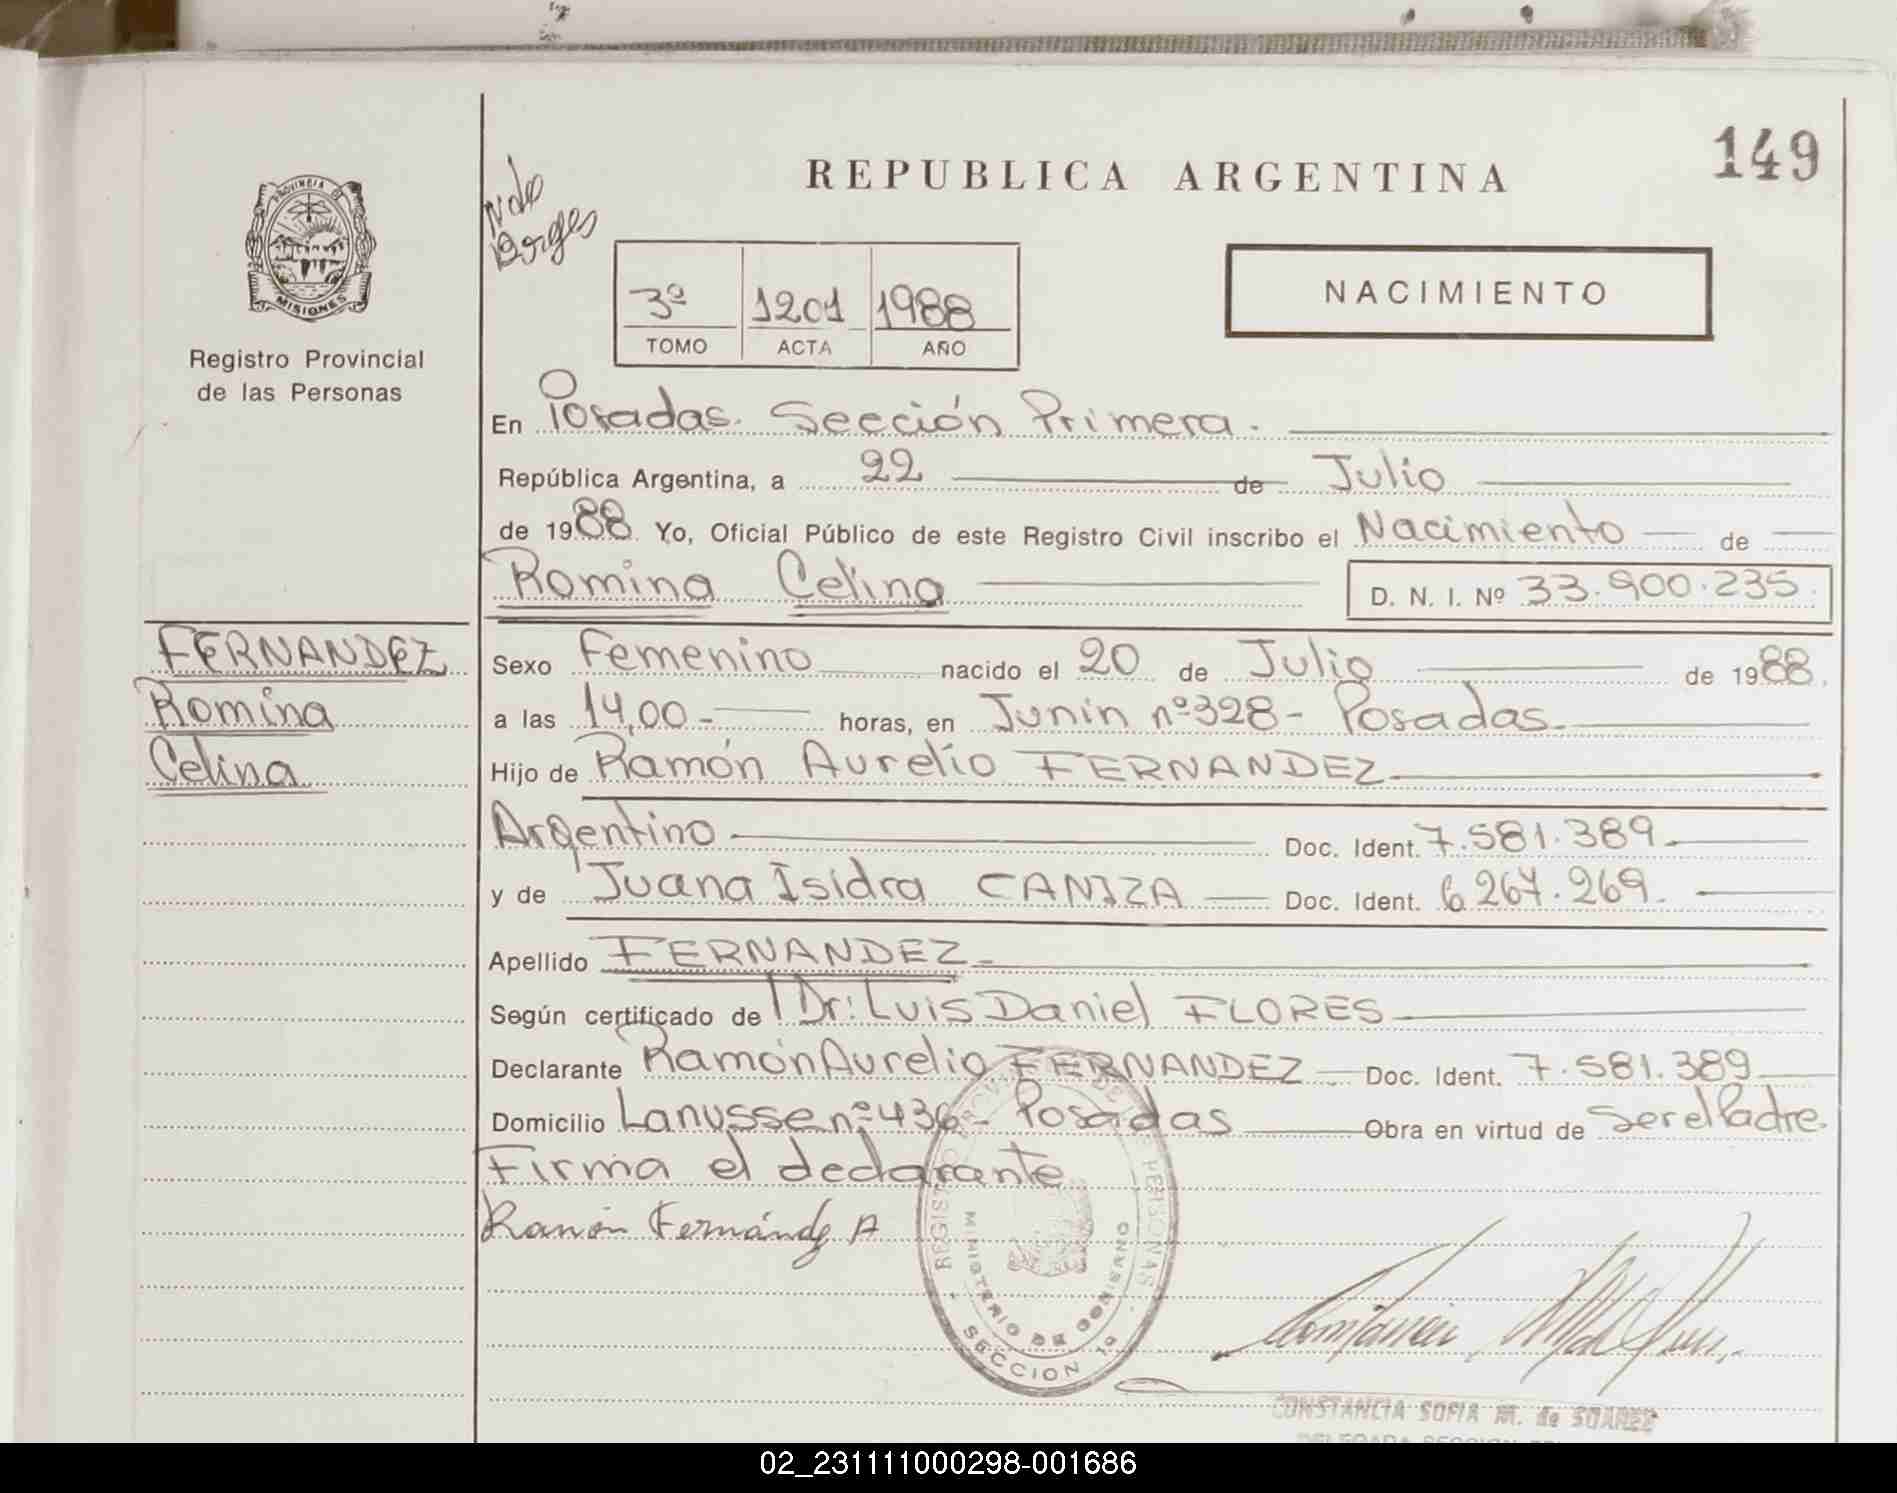 149
REPUBLICA ARGENTINA
PROVINCIA DE
MISIONES
Registro Provincial
de las Personas
Ndo
Borges
3º 1201 1988
TOMO ACTA AÑO
NACIMIENTO
En Posadas. Sección Primera.
República Argentina, a 22 de Julio
de 1988 Yo, Oficial Público de este Registro Civil inscribo el Nacimiento de
Romina Celina D. N. I. Nº 33.900.235.
FERNANDEZ
Romina
Celina
Sexo Femenino nacido el 20 de Julio de 1988.
a las 14,00 - horas, en Junín nº 328 - Posadas.
Hijo de Ramón Aurelio FERNANDEZ
Argentino Doc. Ident. 7.581.389.
y de Juana Isidra CANIZA Doc. Ident. 6.267.269.
Apellido FERNANDEZ.
Según certificado de Dr: Luis Daniel FLORES
Declarante Ramón Aurelio FERNANDEZ Doc. Ident. 7.581.389
Domicilio Lanusse nº 436 - Posadas Obra en virtud de Ser el Padre.
Firma el declarante
Ramón Fernández A
REGISTRO PROVINCIAL DE LAS PERSONAS
MINISTERIO DE GOBIERNO
SECCION 1ª
CONSTANCIA SOFIA M. de SOAREZ
DELEGADA SECCION
02_231111000298-001686